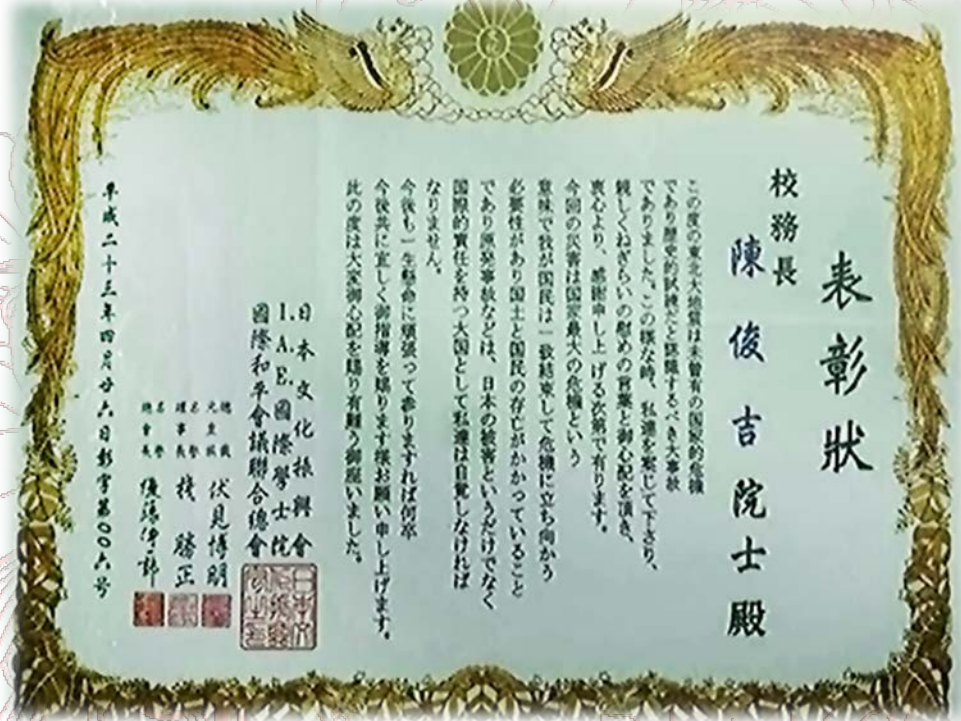 表彰狀
校務長
陳俊吉院士殿
この度の東北大地震は未曾有の国家的危機
であり歴史的試練だと認識するべき大事故
でありました。この様な時、私達を案じて下さり、
親しくねぎらいの慰めの言葉と御心配を頂き、
衷心より、感謝申し上げる次第で有ります。
今回の災害は国家最大の危機という
意味で我が国民は一致結束して危機に立ち向かう
必要性があり国土と国民の存亡がかかっていること
であり原発事故などは、日本の被害というだけでなく
国際的責任を持つ大国として私達は自覚しなければ
なりません。
今後も一生懸命に頑張って参りますれば何卒
今後共に宜しく御指導を賜ります様お願い申し上げます。
此の度は大変御心配を賜り有難う御座いました。
日本文化振興會
I.A.E.國際學士院
國際和平會議聯合總會
總裁
元皇族 伏見博明
名譽
理事長 桟勝正
名譽
總會長
平成二十三年四月廿六日彰字第〇〇六号